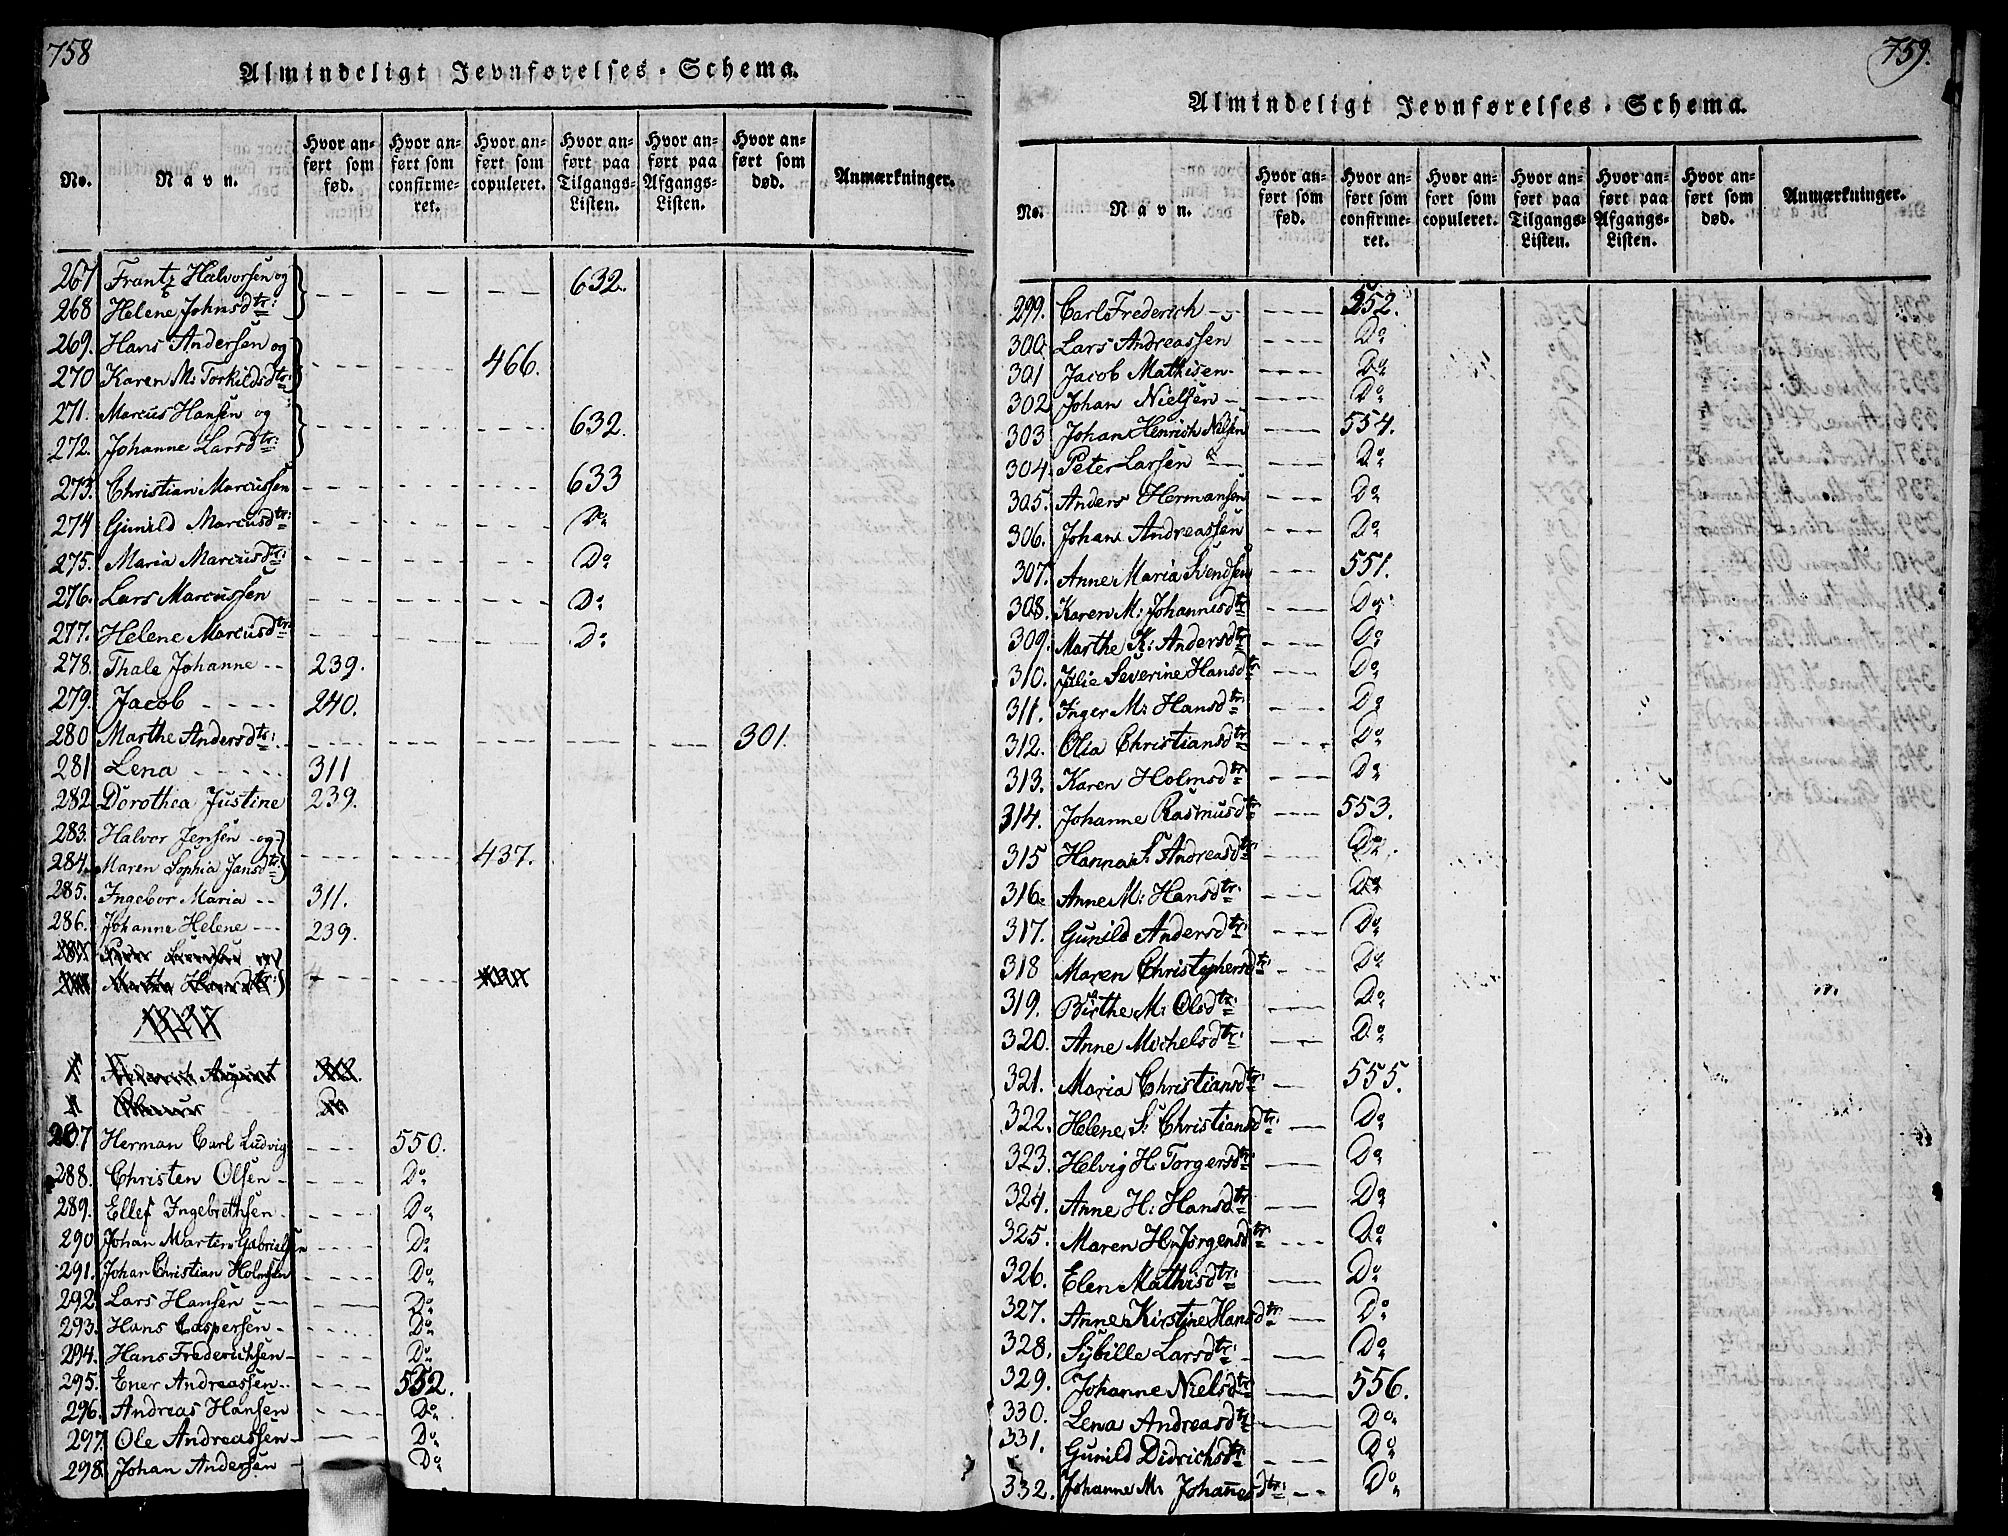 758
Almindeligt Jevnførelses-Schema.
No.
Navn.
Hvor anført som fød.
Hvor anført som confirmeret.
Hvor anført som copuleret.
Hvor anført paa Tilgangs-Listen.
Hvor anført paa Afgangs-Listen.
Hvor anført som død.
Anmærkninger.
267 Frantz Halvorsen og
268 Helene Johnsdtr: 632.
269. Hans Andersen og
270 Karen M: Torkildsdtr: 466.
271. Marcus Hansen og
272. Johanne Larsdtr: 632.
273. Christian Marcussen 633
274 Gunild Marcusdtr: Do
275. Maria Marcusdtr: Do
276. Lars Marcussen Do
277. Helene Marcusdtr: Do
278. Thale Johanne 239.
279. Jacob 240.
280 Marthe Andersdtr: 301.
281 Lena 311
282 Dorothea Justine 239.
283. Halvor Jensen og
284. Maren Sophia Jansdtr: 437.
285. Ingebor Maria 311.
286. Johanne Helene 239.
287 Herman Carl Ludvig 550.
288. Christen Olsen Do
289. Ellef Ingebrethsen Do
290 Johan Martin Gabrielsen Do
291. Johan Christian Holmsen Do
292. Lars Hansen Do
293. Hans Caspersen Do
294. Hans Frederichsen Do
295. Ener Andreassen 552.
296. Andreas Hansen Do
297. Ole Andreassen Do
298. Johan Andersen Do
759.
Almindeligt Jevnførelses-Schema.
No.
Navn.
Hvor anført som fød.
Hvor anført som confirmeret.
Hvor anført som copuleret.
Hvor anført paa Tilgangs-Listen.
Hvor anført paa Afgangs-Listen.
Hvor anført som død.
Anmærkninger.
299. Carl Frederich 552.
300 Lars Andreassen Do
301 Jacob Mathisen Do
302 Johan Nielsen Do
303 Johan Henrich Nielsen 554.
304 Peter Larsen Do
305. Anders Hermansen Do
306. Johan Andreassen Do
307. Anne Maria Svendsen 551.
308. Karen M: Johannisdtr: Do
309. Marthe K: Andersdtr: Do
310. Julie Severine Hansdtr: Do
311. Inger M: Hansdtr: Do
312. Olia Christiansdtr: Do
313. Karen Holmsdtr: Do
314. Johanne Rasmusdtr: 553.
315 Hanna S. Andreasdtr: Do
316. Anne M: Hansdtr: Do
317. Gunild Andersdtr: Do
318 Maren Christophersdtr: Do
319. Birthe M: Olsdtr: Do
320. Anne Michelsdtr: Do
321. Maria Christiansdtr: 555.
322. Helene S: Christiansdtr: Do
323. Helvig H: Torgersdtr: Do
324. Anne H: Hansdtr: Do
325. Maren H: Jörgensdtr: Do
326. Elen Mathisdtr: Do
327. Anne Kirstine Hansdtr: Do
328. Sybille Larsdtr: Do
329. Johanne Nielsdtr: 556.
330. Lena Andreasdtr: Do
331. Gunild Didrichsdtr: Do
332. Johanne M: Johannesdtr: Do